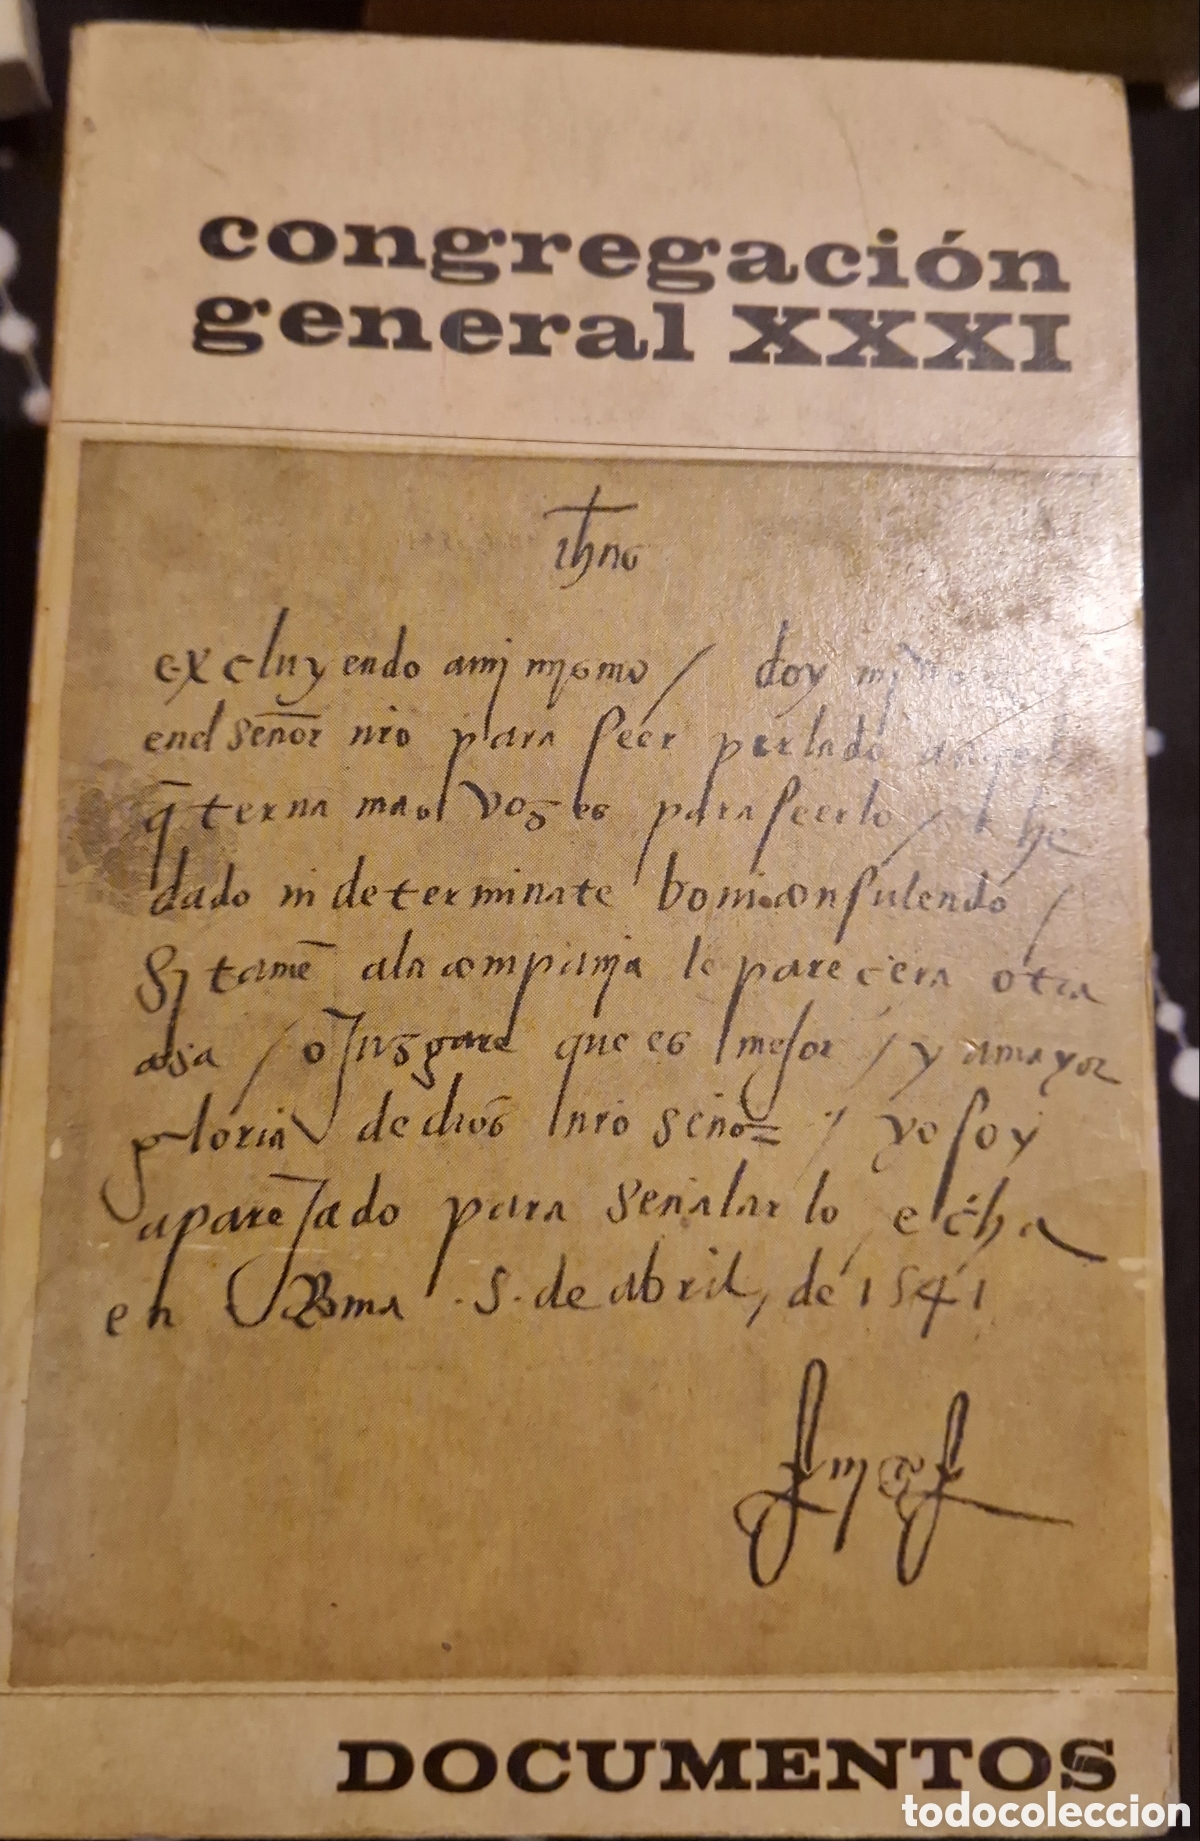 congregación
general XXXI
ihus
excluyendo a mj mjsmo / doy mj voz
enel señor nro para seer perlado aaquel
q̄ terna mas vozes para seerlo / he
dado indeterminate boni consulendo /
Sj tamē ala compania le parecera otra
cosa / o Juzgare que es mejor / y a mayor
gloria de dios nro señor / yo soy
aparejado para señalarlo, echa
en Roma .5. de abril, de 1541
DOCUMENTOS
todocoleccion